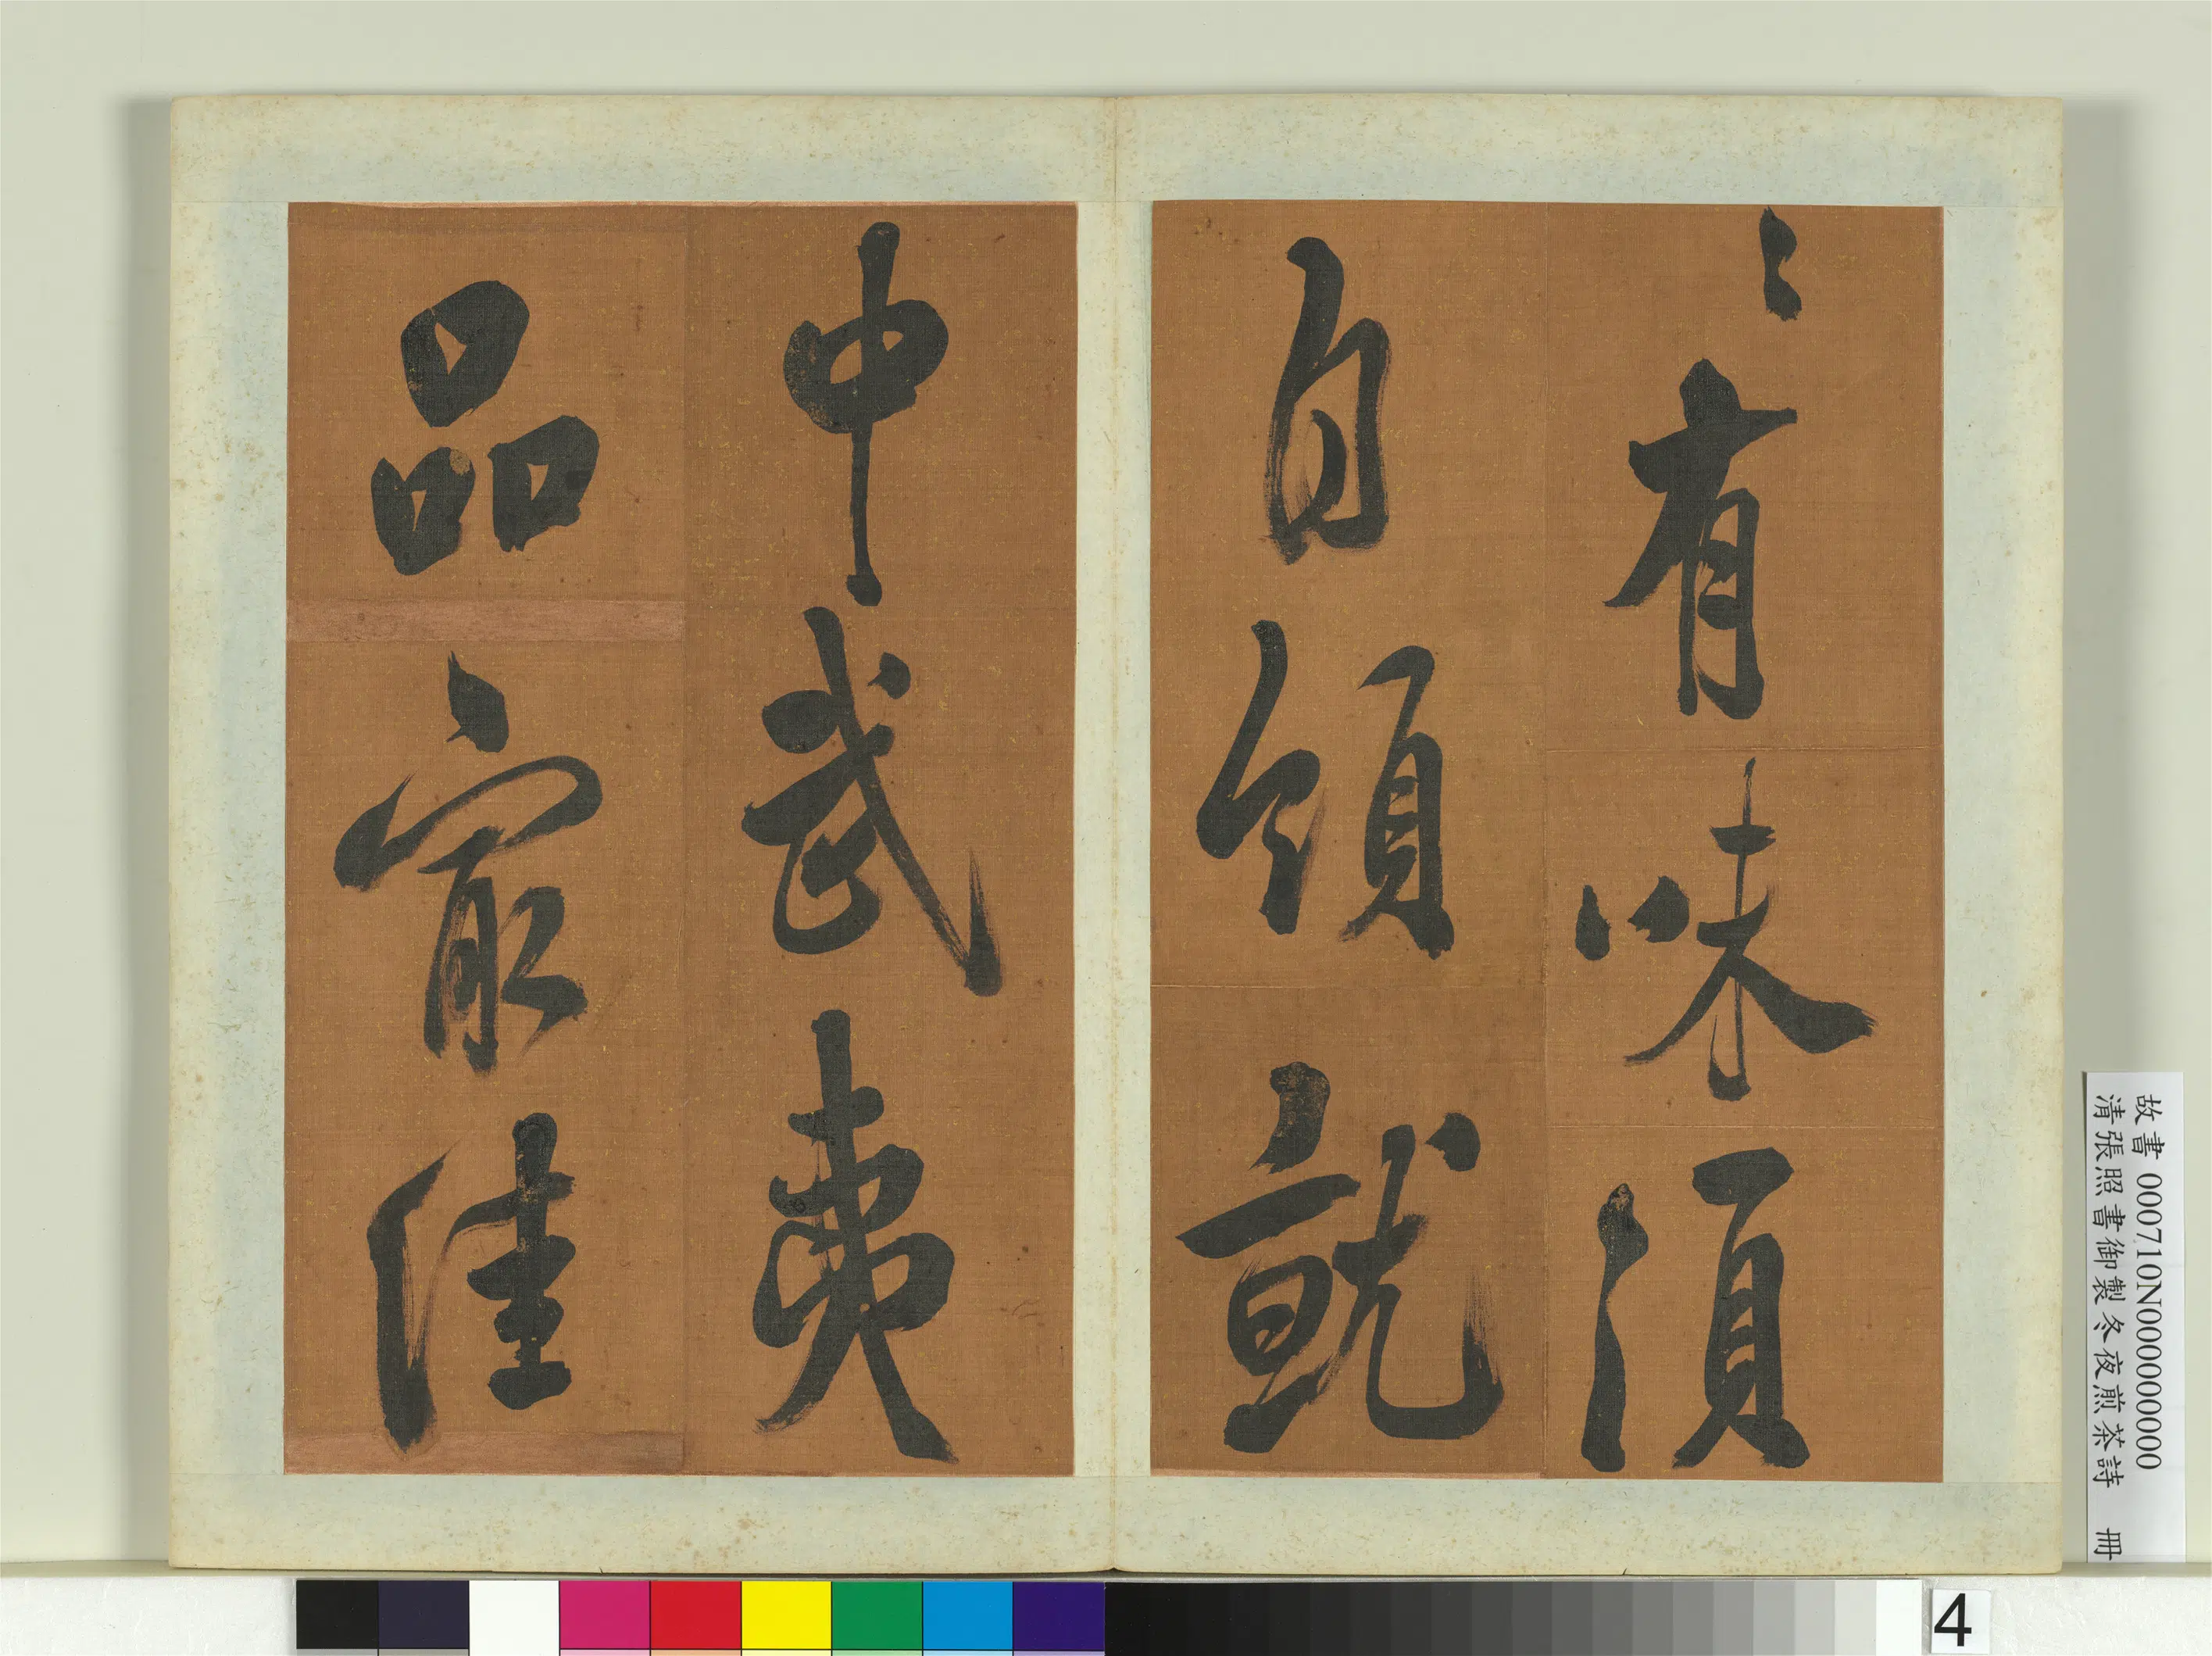 〻有味須
自領就
中武夷
品㝡佳
故書 000710N000000000
清張照書御製冬夜煎茶詩 冊
4